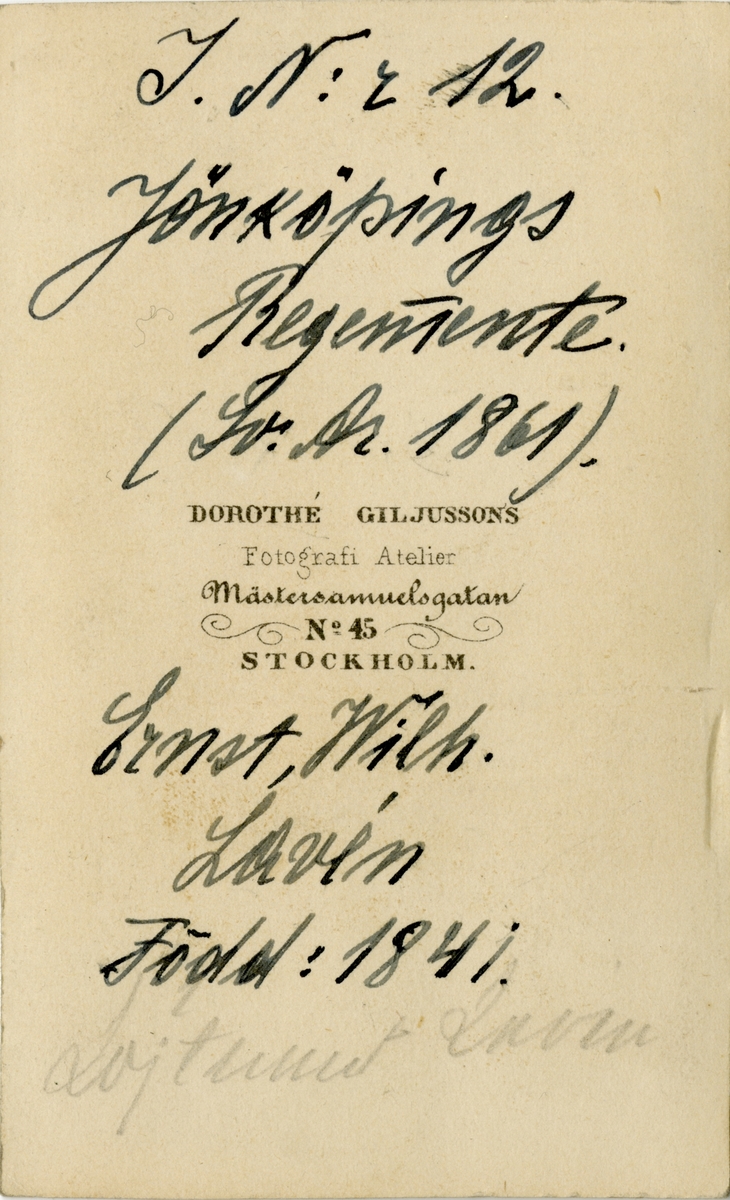 I. N:r 12.
Jönköpings
Regemente.
(Lv: Ar. 1861).
DOROTHÉ GILJUSSONS
Fotografi Atelier
Mästersamuelsgatan
Nº 45
STOCKHOLM.
Ernst, Wilh.
Lavén
Född: 1841.
Löjtnant Laven